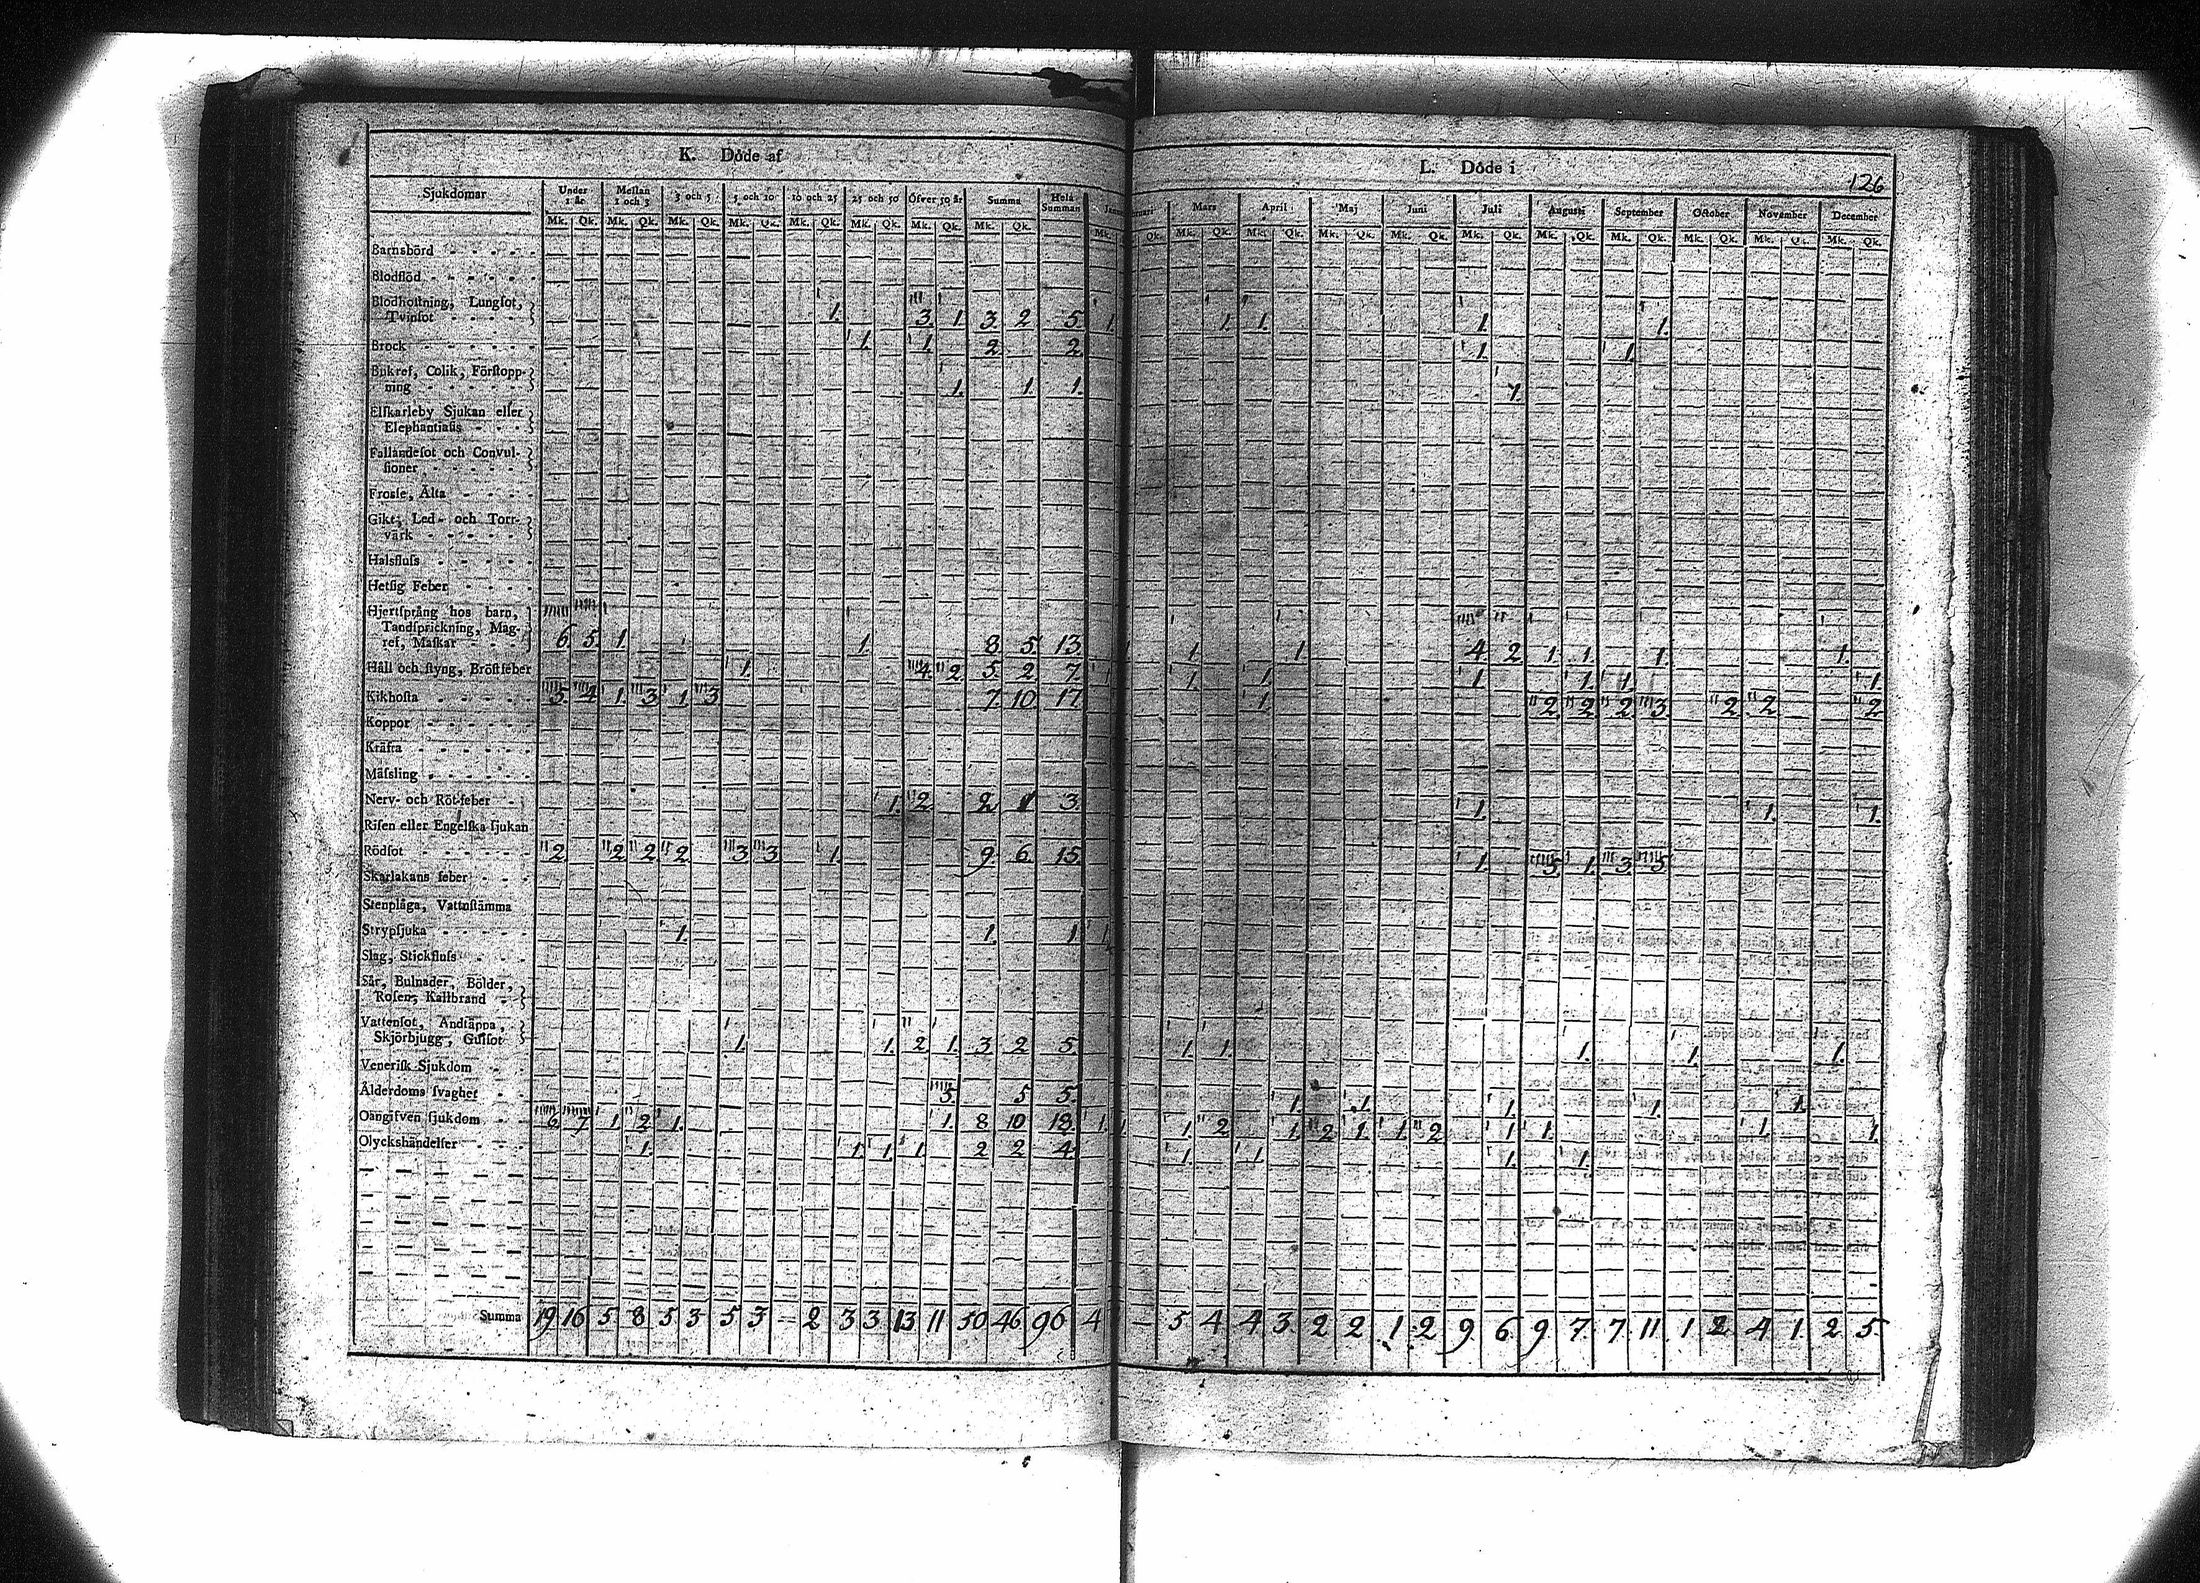 K. Döde af
L. Döde i
126
Sjukdomar Under 1 år Mellan 1 och 3 3 och 5 5 och 10 10 och 25 25 och 50 Öfver 50 år Summa Hela Summan Mars April Maj Juni Juli Augusti September October November December
Mk. Qk. Mk. Qk. Mk. Qk. Mk. Qk. Mk. Qk. Mk. Qk. Mk. Qk. Mk. Qk. Mk. Qk. Mk. Qk. Mk. Qk. Mk. Qk. Mk. Qk. Mk. Qk. Mk. Qk. Mk. Qk. Mk. Qk. Mk. Qk. Mk. Qk.
Barnsbörd
Blodflöd
Blodhostning, Lungſot,
Tvinſot 1. 3. 1. 3. 2 5. 1. 1. 1. 1. 1.
Brock 1. 1. 2. 2. 1. 1.
Bukref, Colik, Förſtopp-
ning 1. 1. 1. 1.
Elfkarleby Sjukan eller
Elephantiaſis
Fallandeſot och Convul-
ſioner
Froſſe, Älta
Gikt, Led- och Torr-
värk
Halsfluſs
Hetſig Feber
Hjertſprång hos barn,
Tandſprickning, Mag-
ref, Maſkar 6. 5. 1. 1. 8 5. 13. 1. 1. 4 2 1. 1. 1. 1.
Håll och ſtyng, Bröſtfeber 1. 4. 2. 5. 2. 7. 1. 1. 1. 1. 1. 1.
Kikhoſta 5. 4. 1. 3. 1. 3. 7. 10. 17. 1. 2. 2. 2. 3. 2. 2. 2.
Koppor
Kräfta
Mäſsling
Nerv- och Röt-feber 1. 2. 2. 1 3. 1. 1. 1.
Riſen eller Engelſka ſjukan
Rödſot 2. 2. 2. 2. 3. 3. 1. 9. 6. 15. 1. 5. 1. 3. 5.
Skarlakans feber
Stenplåga, Vattuſtämma
Strypſjuka 1. 1. 1 1.
Slag, Stickfluſs
Sår, Bulnader, Bölder,
Roſen, Kallbrand
Vattenſot, Andtäppa,
Skjörbjugg, Gulſot 1. 1. 2. 1. 3. 2 5. 1. 1. 1. 1. 1.
Veneriſk Sjukdom
Ålderdoms ſvaghet 5. 5 5. 1. 1. 1. 1. 1.
Oangifven ſjukdom 6. 7. 1. 2. 1. 1. 8 10 18. 1. 1. 1. 2. 1. 2 1. 1. 2. 1. 1. 1. 1.
Olyckshändelſer 1. 1. 1. 1. 2 2 4. 1. 1. 1. 1.
Summa 19 16 5 8 5 3 5 3 2 3 3 13 11 50 46 96 4 5 4 4 3. 2 2 1 2 9 6. 9 7. 7. 11 1 2. 4 1. 2 5.